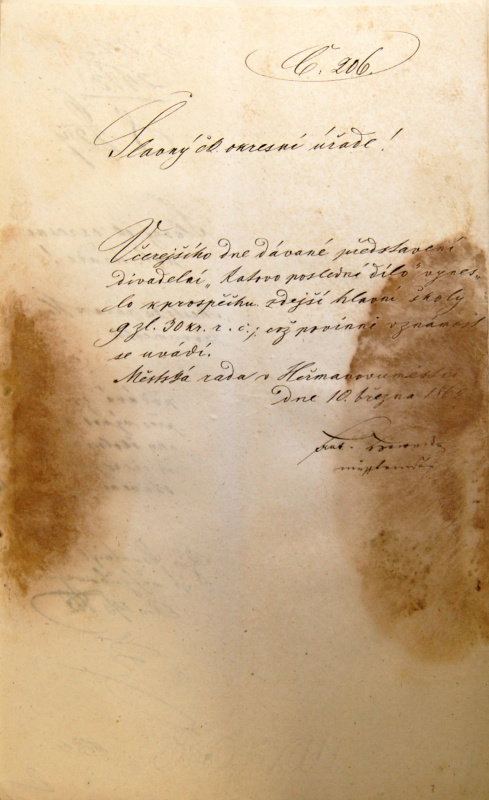 Č. 206.
Slavný c.k. okresní úřade!
Včerejšího dne dávané představení
divadelní „Katovo poslední dílo" vynes-
lo k prospěchu zdejší hlavní školy
9 zl. 30 kr. r. č.; což povinni v známost
se uvádí.
Městská rada v Heřmanovuměstci
dne 10. března 18